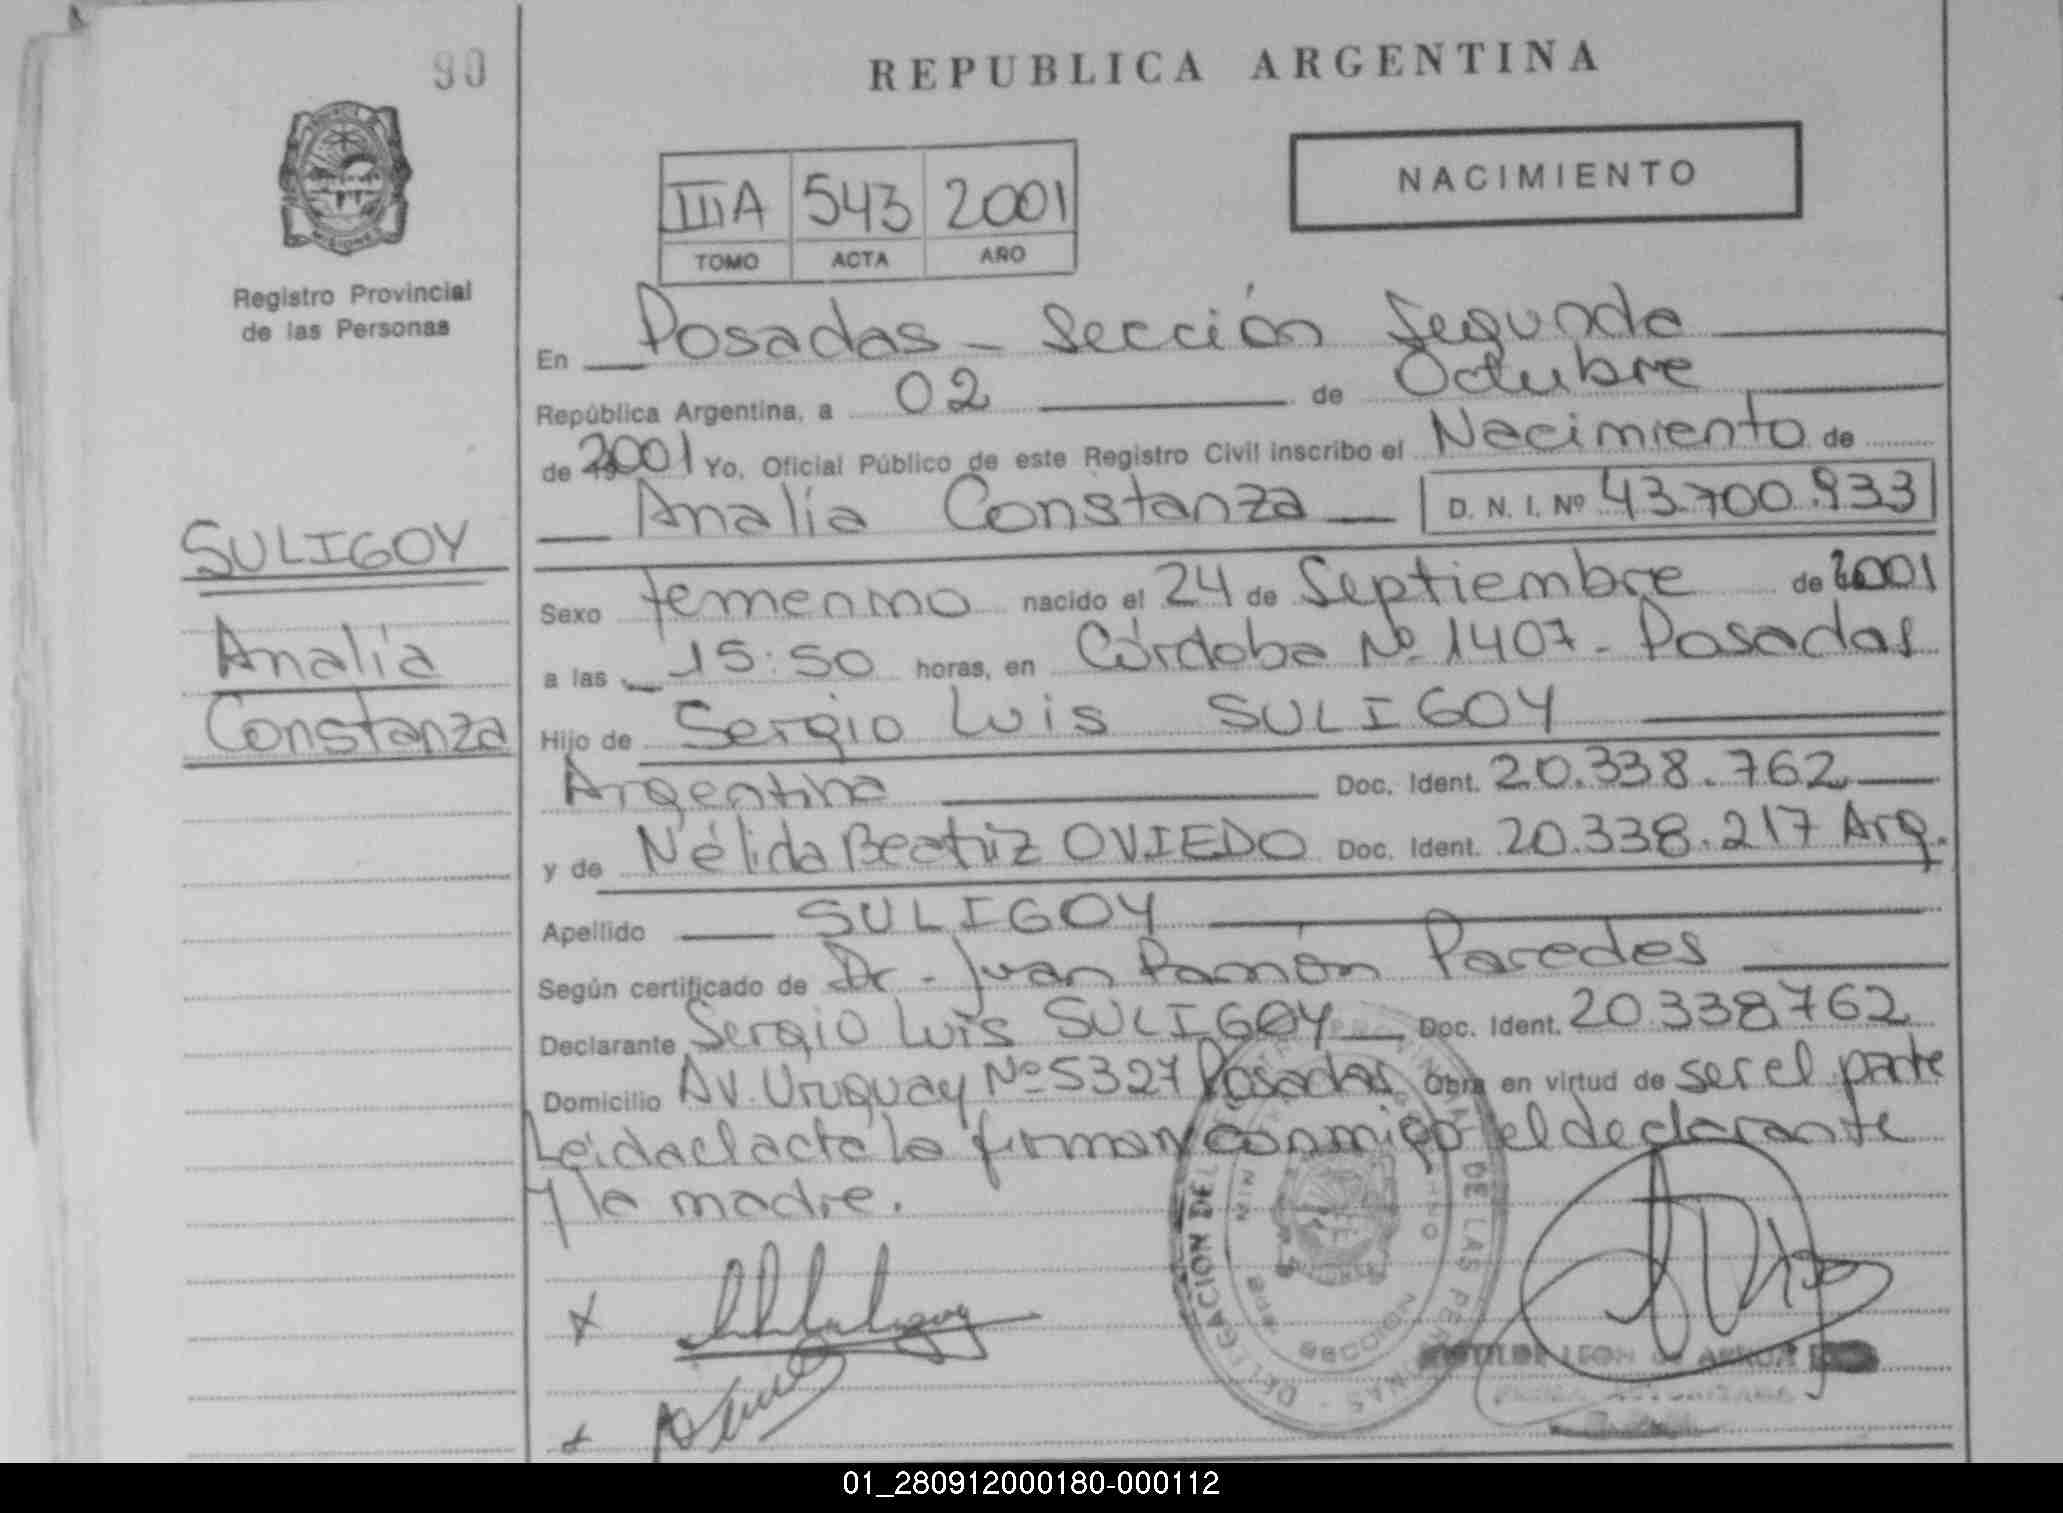 90
REPUBLICA ARGENTINA
NACIMIENTO
IIIA 543 2001
TOMO ACTA AÑO
Registro Provincial
de las Personas
En Posadas - Sección Segunda
República Argentina, a 02 de Octubre
de 2001 Yo, Oficial Público de este Registro Civil inscribo el Nacimiento de
Analía Constanza D. N. I. Nº 43.700.933
SULIGOY
Analía
Constanza
Sexo femenino nacido el 24 de Septiembre de 2001
a las 15:50 horas, en Córdoba Nº 1407 - Posadas
Hijo de Sergio Luis SULIGOY
Argentina Doc. Ident. 20.338.762
y de Nélida Beatriz OVIEDO Doc. Ident. 20.338.217 Arg.
Apellido SULIGOY
Según certificado de Dr. Juan Ramón Paredes
Declarante Sergio Luis SULIGOY Doc. Ident. 20338762
Domicilio Av. Uruguay Nº 5327 Posadas Obra en virtud de ser el padre
Leída el acta la firman conmigo el declarante
y la madre.
DELEGACION DEL DE LAS PERSONAS
MISIONES
LEON de
01_280912000180-000112